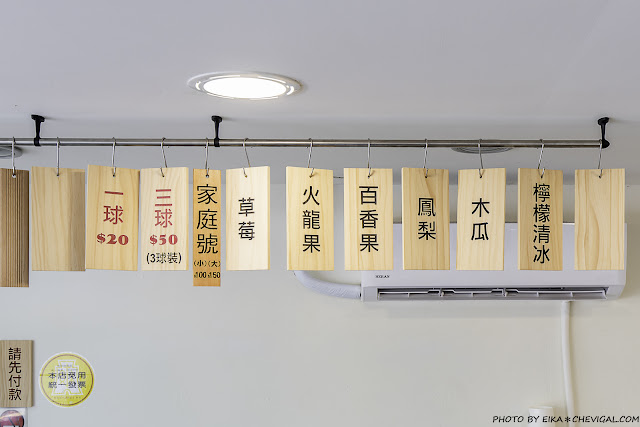 一球
$20
三球
$50
(3球裝)
家庭號
(小)(大)
100 150
草莓
火龍果
百香果
鳳梨
木瓜
檸檬清冰
請先付款
本店免用
統一發票
PHOTO BY EIKA＊CHEVIGAL.COM